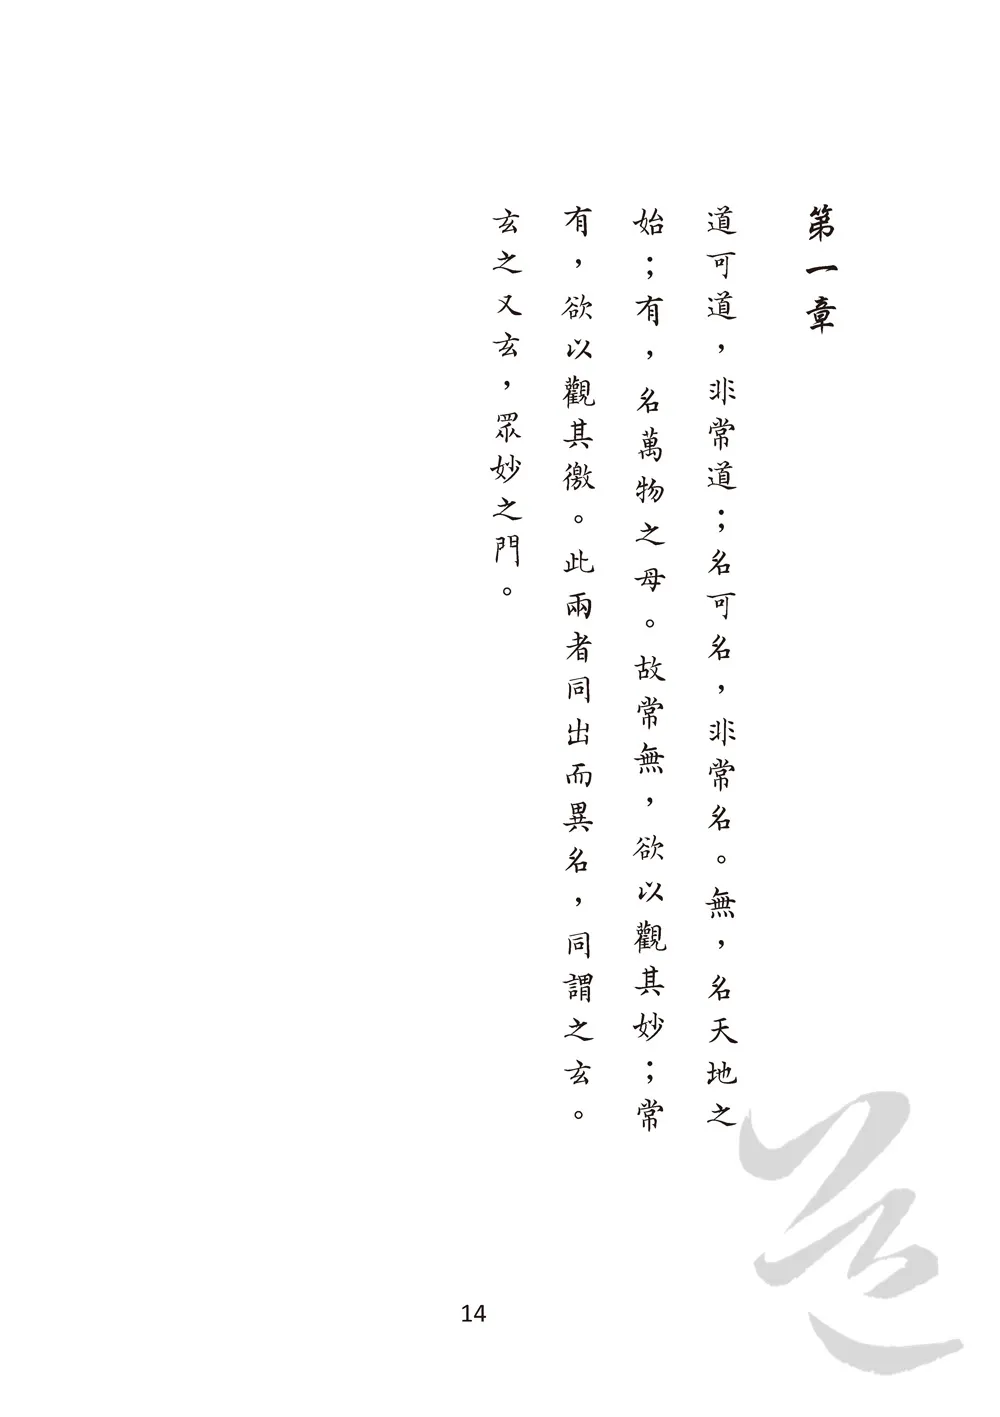 第一章
道可道，非常道；名可名，非常名。無，名天地之
始；有，名萬物之母。故常無，欲以觀其妙；常
有，欲以觀其徼。此兩者同出而異名，同謂之玄。
玄之又玄，眾妙之門。
道
14